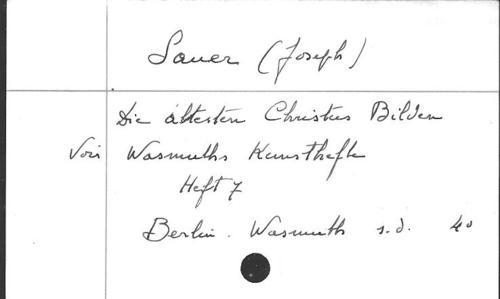 Sauer (Joseph)
Die ältesten Christus Bilder
Voir Wasmuths Kunsthefte
Heft 7
Berlin. Wasmuth s.d. 4o